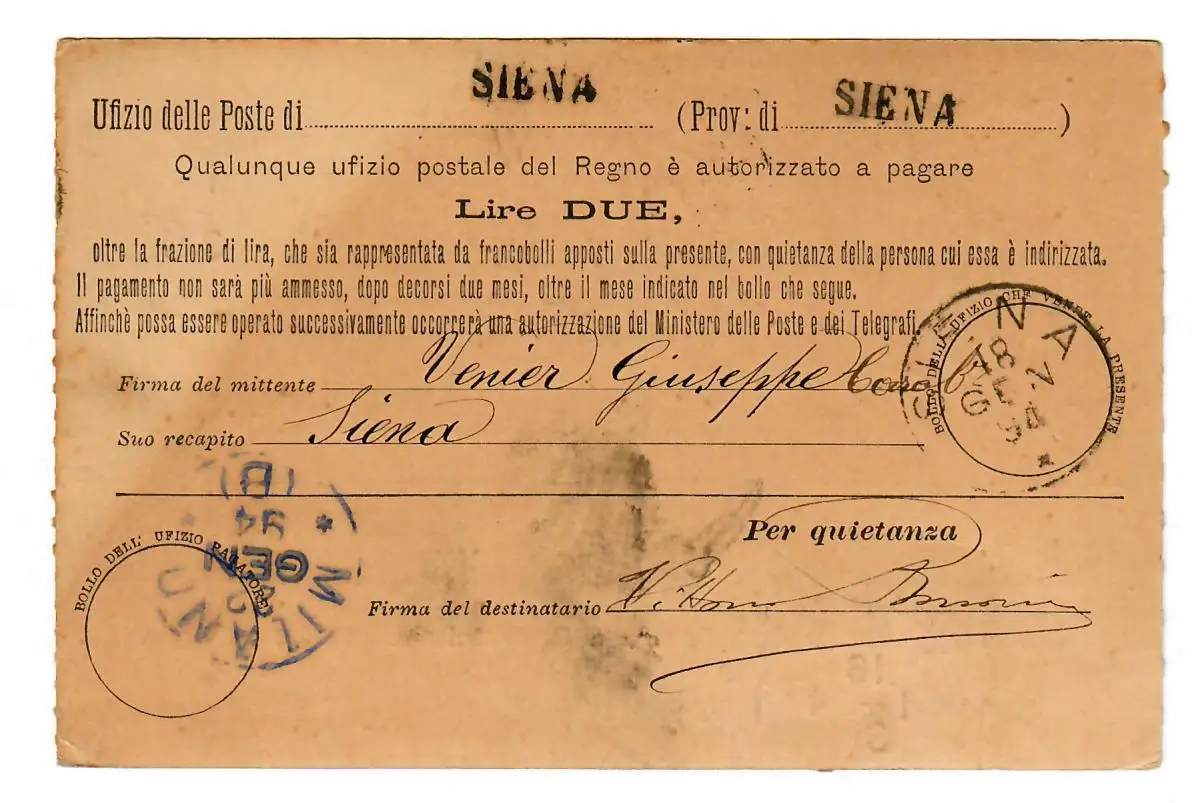 SIENA SIENA
Ufizio delle Poste di (Prov: di )
Qualunque ufizio postale del Regno è autorizzato a pagare
Lire DUE,
oltre la frazione di lira, che sia rappresentata da francobolli apposti sulla presente, con quietanza della persona cui essa è indirizzata.
Il pagamento non sarà più ammesso, dopo decorsi due mesi, oltre il mese indicato nel bollo che segue.
Affinchè possa essere operato successivamente occorrerà una autorizzazione del Ministero delle Poste e dei Telegrafi.
BOLLO DELL' UFIZIO CHE VENDE LA PRESENTE
SIENA
18
GE
94
Firma del mittente Venier Giuseppe
Suo recapito Siena
Per quietanza
BOLLO DELL' UFIZIO PAGATORE
MILANO
GEN
94
(B)
Firma del destinatario